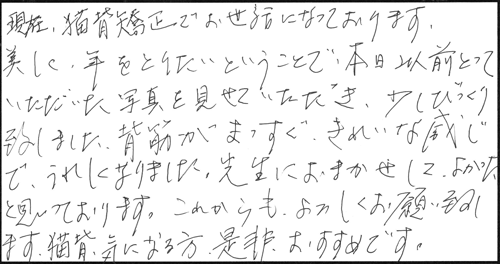 現在、猫背矯正でお世話になっております。
美しく、年をとりたいということで、本日、以前とって
いただいた写真を見せていただき、少しびっくり
致しました。背筋がまっすぐ、きれいな感じ
で、うれしくなりました。先生におまかせして、よかった
と思っております。これからも、よろしくお願い致し
ます。猫背、気になる方、是非、おすすめです。